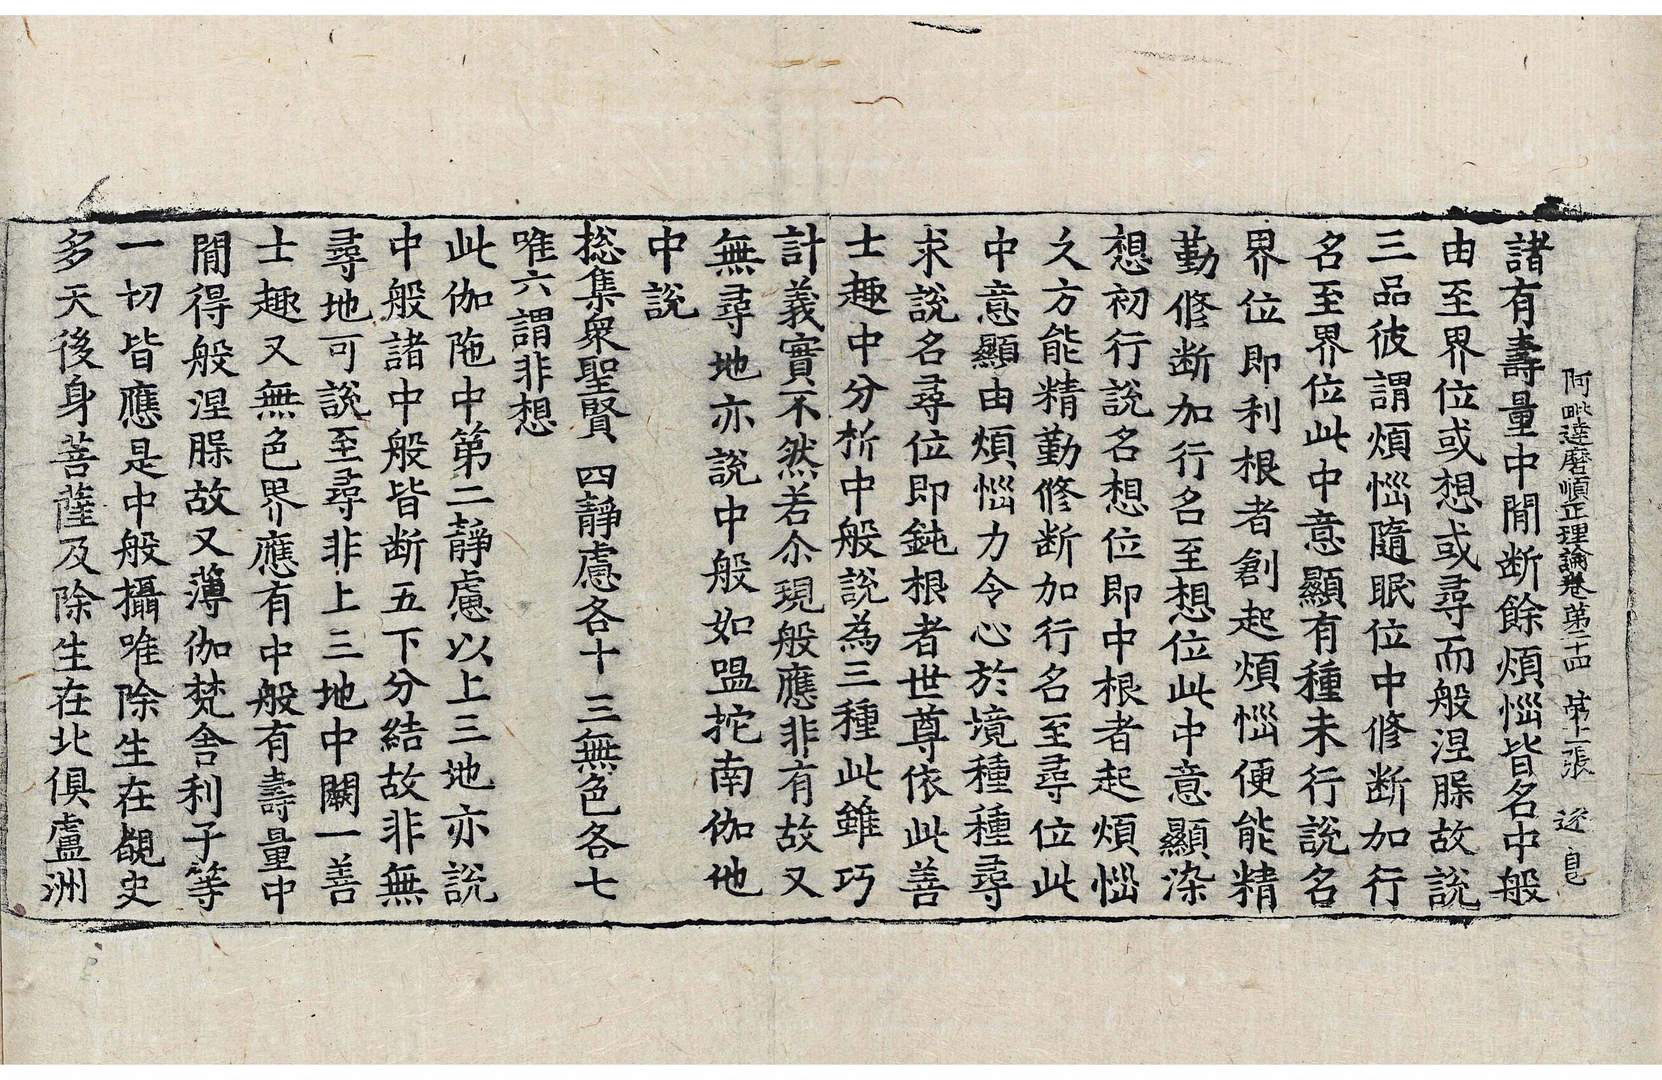 阿毗達磨順正理論卷第二十四 第十張 逐皀
諸有壽量中閒断餘煩惱皆名中般
由至界位或想或尋而般涅槃故說
三品彼謂煩惱隨眠位中修断加行
名至界位此中意顯有種未行說名
界位即利根者創起煩惱便能精
勤修断加行名至想位此中意顯染
想初行說名想位即中根者起煩惱
久方能精勤修断加行名至尋位此
中意顯由煩惱力令心於境種種尋
求說名尋位即鈍根者世尊依此善
士趣中分析中般說為三種此雖巧
計義實不然若尒現般應非有故又
無尋地亦說中般如嗢拕南伽他
中說
捴集衆聖賢 四靜慮各十 三無色各七
唯六謂非想
此伽陁中第二靜慮以上三地亦說
中般諸中般皆断五下分結故非無
尋地可說至尋非上三地中闕一善
士趣又無色界應有中般有壽量中
閒得般涅槃故又薄伽梵舍利子等
一切皆應是中般攝唯除生在覩史
多天後身菩薩及除生在北俱盧洲